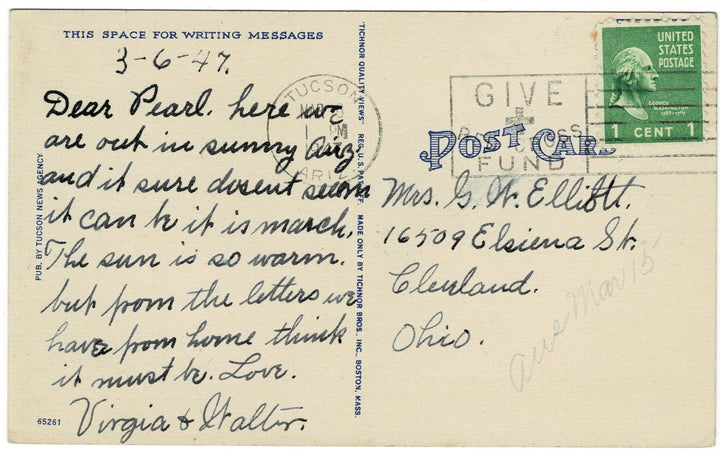 THIS SPACE FOR WRITING MESSAGES
3-6-47.
Dear Pearl. here we
are out in sunny Ariz
and it sure dosent seem
it can be it is march.
The sun is so warm.
but from the letters we
have from home think
it must be. Love.
Virgia & Walter.
65261
PUB. BY TUCSON NEWS AGENCY
"TICHNOR QUALITY VIEWS" REG. U.S. PAT. OFF. MADE ONLY BY TICHNOR BROS. INC., BOSTON, MASS.
TUCSON
MAR
PM
ARIZ
GIVE
FUND
POST CARD
UNITED
STATES
POSTAGE
GEORGE
WASHINGTON
1789-1797
1 CENT 1
Mrs. G. W. Elliott.
16509 Elsiena St.
Cleveland.
Ohio.
Ans Mar 15